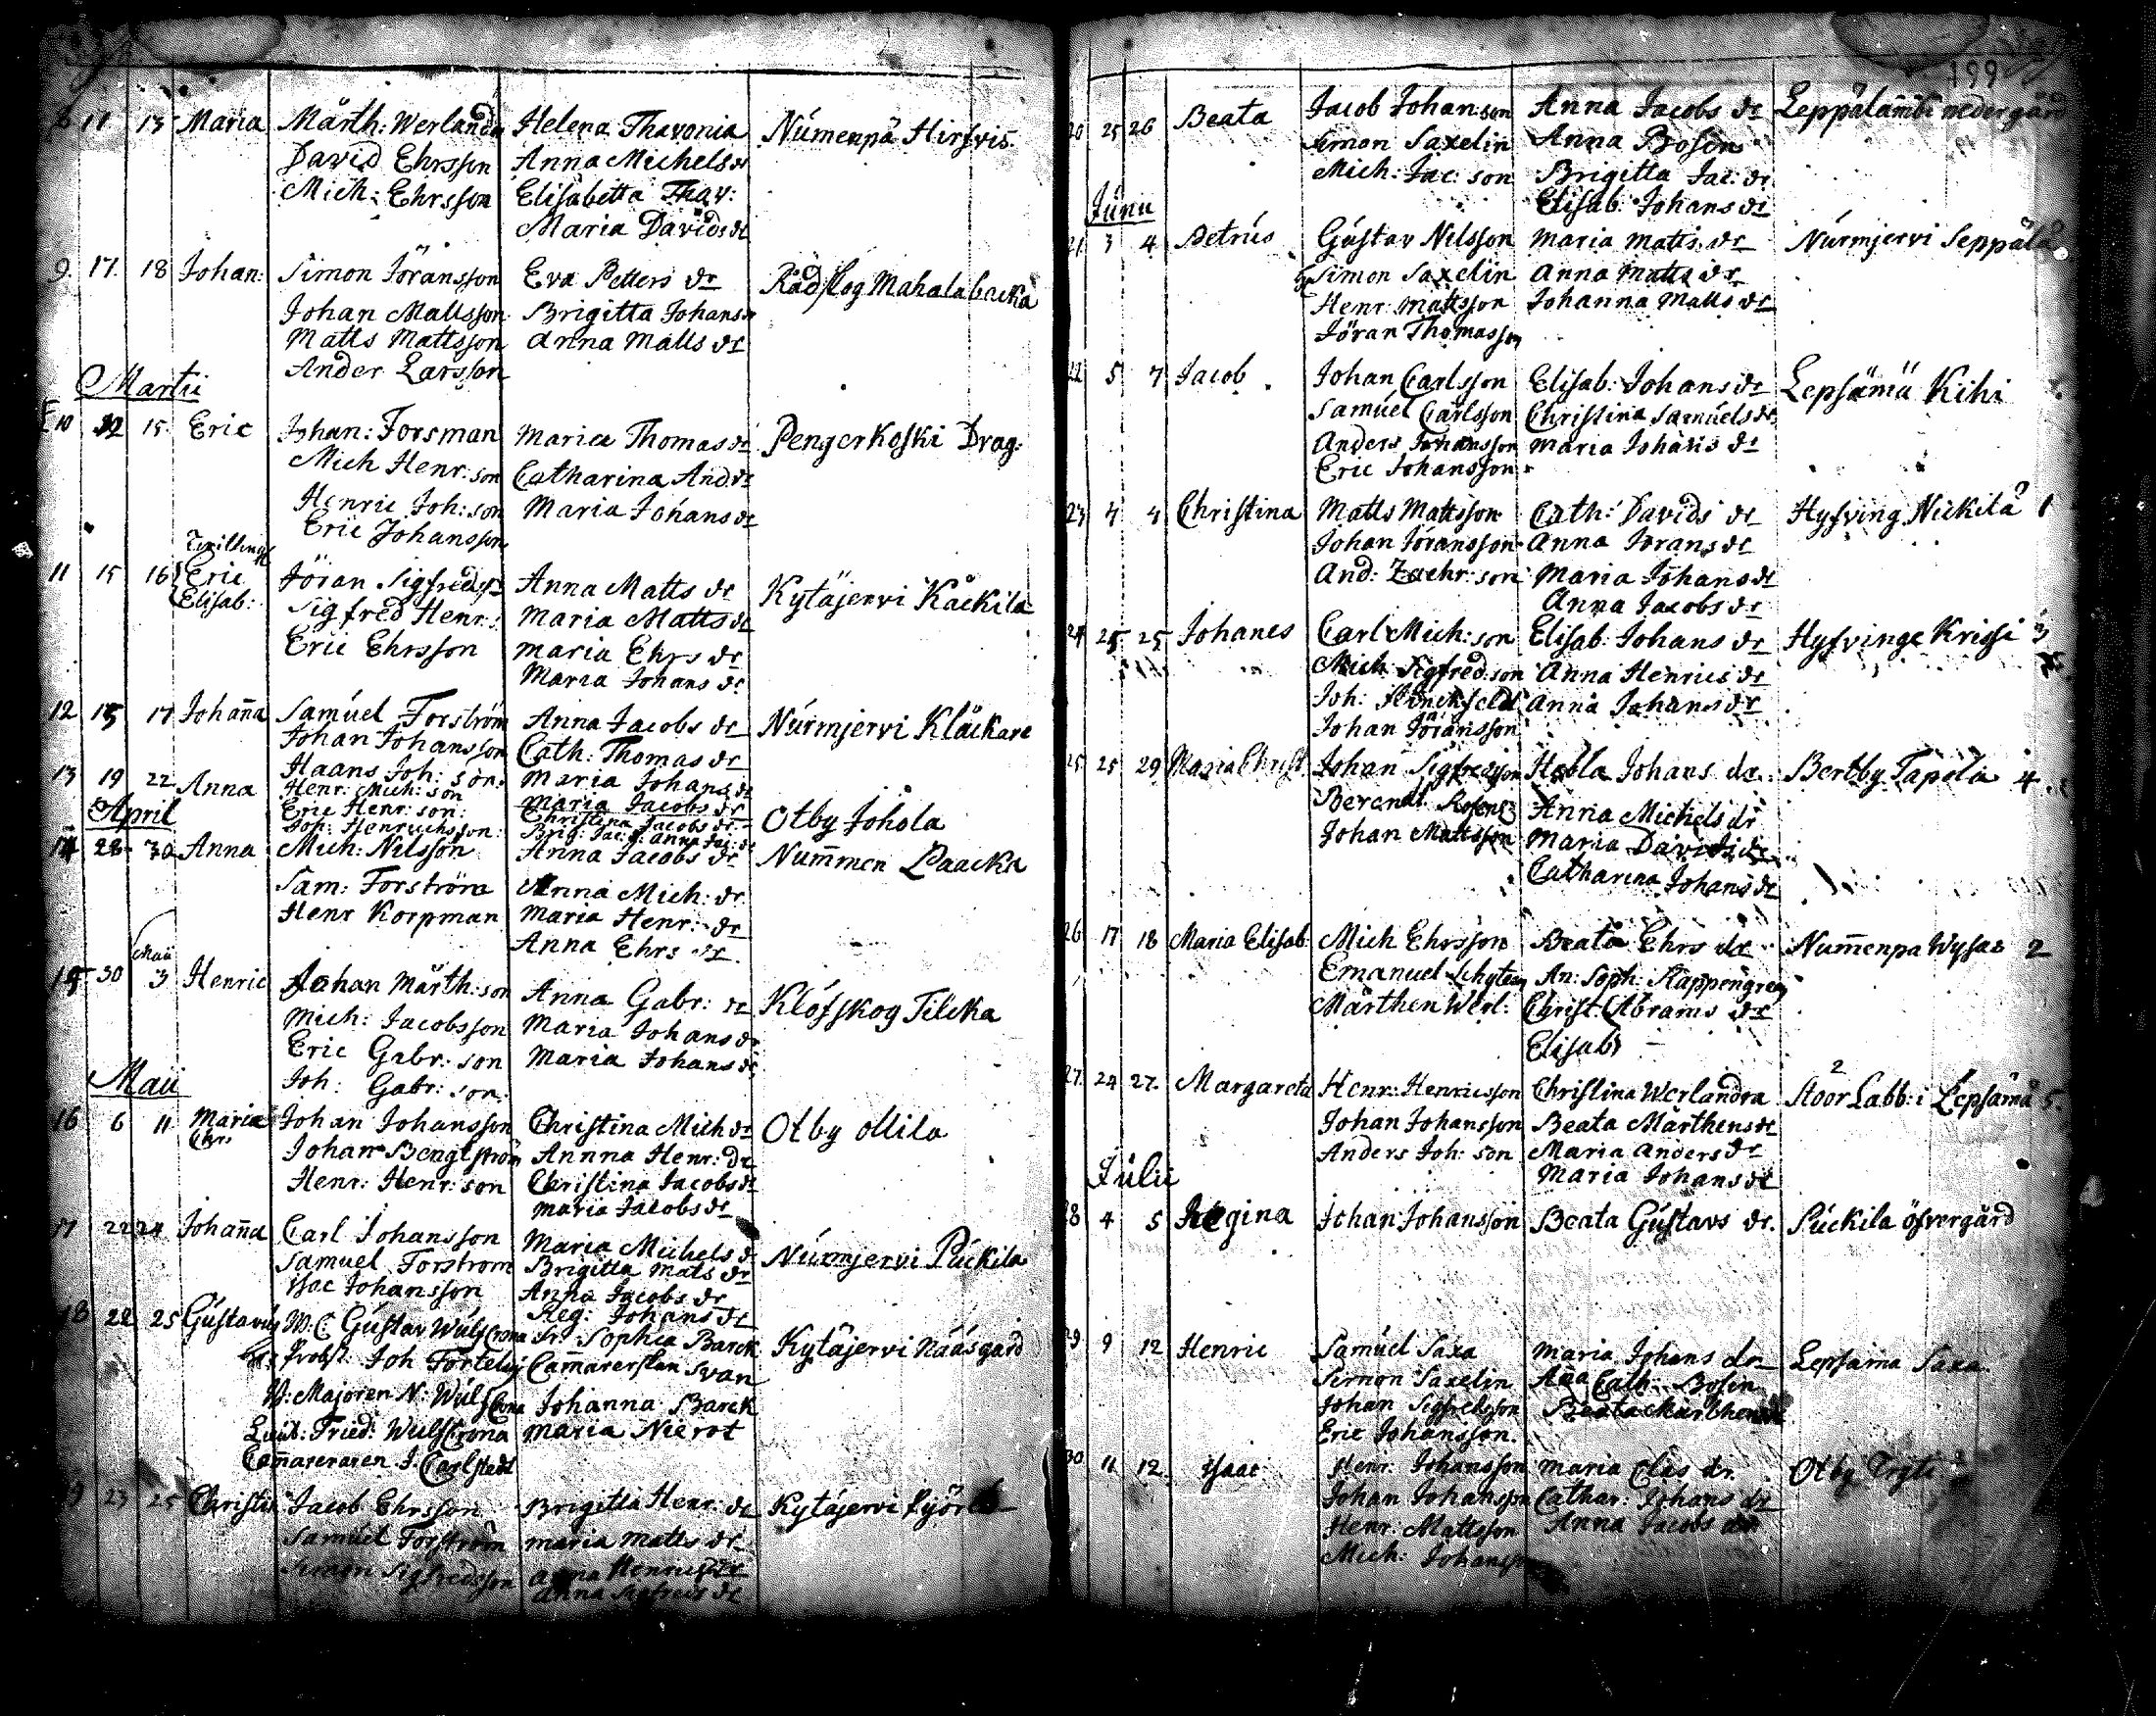 11 13 Maria Märth: Werlandr Helena Thavonia Númenpä Hirfvis.
David Ehrsson Anna Michels dr
Mich: Ehrsson Elisabetta Thav:
Maria Davids dr
9. 17. 18 Johan: Simon Jöransson Eva Petters dr Rådskog Mahalabacka
Johan Mattsson Brigitta Johans dr
Matts Mattsson Anna Matts dr
Ander Larsson
Martii
10 12 15 Eric Johan: Forsman Maria Thomas dr Pengerkoski Drag:
Mich Henr: son Catharina And dr
Henric Joh: son Maria Johans dr
Eric Johansson
Tvillingr
11 15 16 Eric Jöran Sigfreds Anna Matts dr Kytäjervi Kåckila
Elisab: Sigfred Henr: Maria Matts dr
Eric Ehrsson Maria Ehrs dr
Maria Johans dr
12 15 17 Johañna Samúel Forström Anna Jacobs dr Núrmjervi Klåckare
Johan Johansson Cath: Thomas dr
Haans Joh: son: Maria Johans dr
13 19 22 Anna Henr: Mich: son Maria Jacobs dr Otby Johola
Eric Henr: son: Christina Jacobs dr
Joh: Henrichsson: Brig: Jac: dr Anna Jac: dr
April
14 28 30 Anna Mich: Nilsson Anna Jacobs dr Num̄en Paacka
Sam: Forström Anna Mich: dr
Henr Korpman Maria Henr: dr
Anna Ehrs dr
Maii
15 30 3 Henric Johan Märth: son Anna Gabr: dr Klöfskog Tilcka
Mich: Jacobsson Maria Johans dr
Eric Gabr: son Maria Johans dr
Joh: Gabr: son
Maii
16 6 11 Maria Chr: Johan Johansson Christina Mich dr Otby Ollila
Johan Bengtström Annna Henr: dr
Henr: Henr: son Christina Jacobs dr
Maria Jacobs dr
17 22 24 Johañna Carl Johansson Maria Michels dr Núrmjervi Púckila
Samuel Forstrom Brigitta Mats dr
Isac Johansson Anna Jacobs dr
Reg: Johans dr
18 22 25 Gústavús Gústav Wulfcrona Fr: Sophia Barck Kytäjervi Nääsgard
Probst: Joh Fortelius Cam̄arerskan Svan
H: Majoren N: Wulfcrona Johanna Barck
Lieut: Fried: Wulfcrona Maria Nierot
Cam̄areraren J. Carlstedt
19 23 25 Christi Jacob Ehrsson Brigitta Henr: dr Kytäjervi
Samúel Forström Maria Matts dr
Simon Sigfredsson Anna Henrics dr
Anna Sigfreds dr
199
20 25 26 Beata Jacob Johanson Anna Jacobs dr Leppälambi nedergård
Simon Saxelin Anna Bosin
Mich: Jac: son Brigitta Jac: dr
Elisab: Johans dr
Junii
21 3 4 Petrús Gústav Nilsson Maria Matts dr Núrmjervi Seppälä
Simon Saxelin Anna Matts dr
Henr: Mattsson Johanna Matts dr
Jöran Thomasson
22 5 7 Jacob Johan Carlsson Elisab: Johans dr Lepsämä Kihi
Samúel Carlsson Christina Samúels dr
Anders Johansson Maria Johans dr
Eric Johansson
23 4 4 Christina Matts Mattsson Cath: Davids dr Hyfving Nickilä 1
Johan Jöransson Anna Jörans dr
And: Zachr: son Maria Johans dr
Anna Jacobs dr
24 25 25 Johanes Carl Mich: son Elisab: Johans dr Hyfvinge Krissi 3
Mich Sigfred: son Anna Henrics dr
Joh: Anna Johans dr
Johan Jöransson
25 25 29 Maria Christ: Johan Sigfredsson Hebla Johans dr. Bertby Tapela 4
Berendt Anna Michels dr
Johan Mattsson Maria Davids dr
Catharina Johans dr
26 17 18 Maria Elisab: Mich Ehrsson Beata Ehrs dr Num̄enpa Wysas 2
Emanuel An: Soph: Rappengren
Märthen Werl: Christ: Abrams dr
Elisab
27. 24 27. Margareta Henr: Henricsson Christina Werlandra Stoor Labb: i Lepsämä 5.
2
Johan Johansson Beata Märthens dr
Anders Joh: son Maria Anders dr
Maria Johans dr
Julii
28 4 5 Regina Johan Johansson Beata Gústavs dr. Púckila öfvergård
29 9 12 Henric Samúel Saxa Maria Johans dr Lepsama Saxa
Simon Saxelin Cath: Bosin
Johan Sigfredsson Beata Märthens
Eric Johansson.
30 11 12 Isaac Henr: Johansson Maria Clas dr. Otby
Johan Johansson Cathar: Johans dr
Henr: Mattsson Anna Jacobs dr
Mich: Johansson